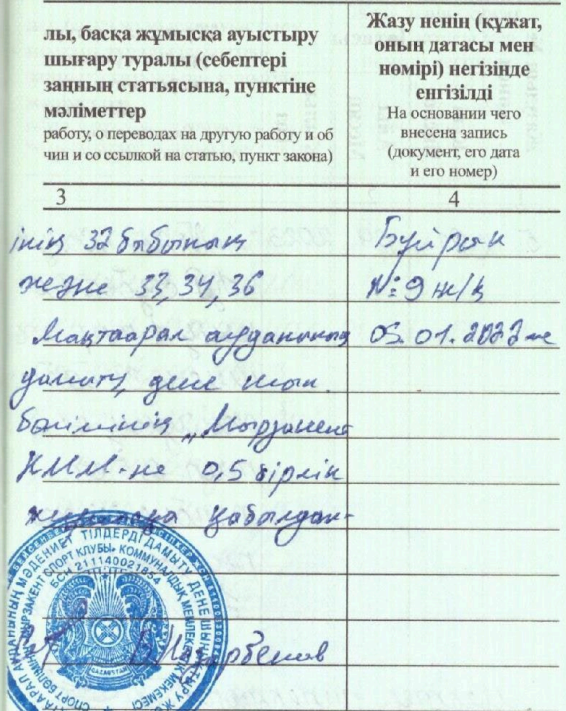 лы, басқа жұмысқа ауыстыру
шығару туралы (себептері
заңның статьясына, пунктіне
мәліметтер
работу, о переводах на другую работу и об
чин и со ссылкой на статью, пункт закона)
Жазу ненің (құжат,
оның датасы мен
нөмірі) негізінде
енгізілді
На основании чего
внесена запись
(документ, его дата
и его номер)
3
4
інің 32 бабының
және 33, 34, 36
Мақтаарал ауданының
дамыту, дене шын
бөлімінің „Мырзакент
КММ-не 0,5 бірлік
жұмысқа қабылдан-
Бұйрық
№ 9 ж/қ
05.01.2022 ж
МӘДЕНИЕТ ТІЛДЕРДІ ДАМЫТУ, ДЕНЕ ШЫНЫҚТЫРУ
СПОРТ КЛУБЫ» КОММУНАЛДЫҚ МЕМЛЕКЕТТІК МЕКЕМЕСІ
БСН 211140021854